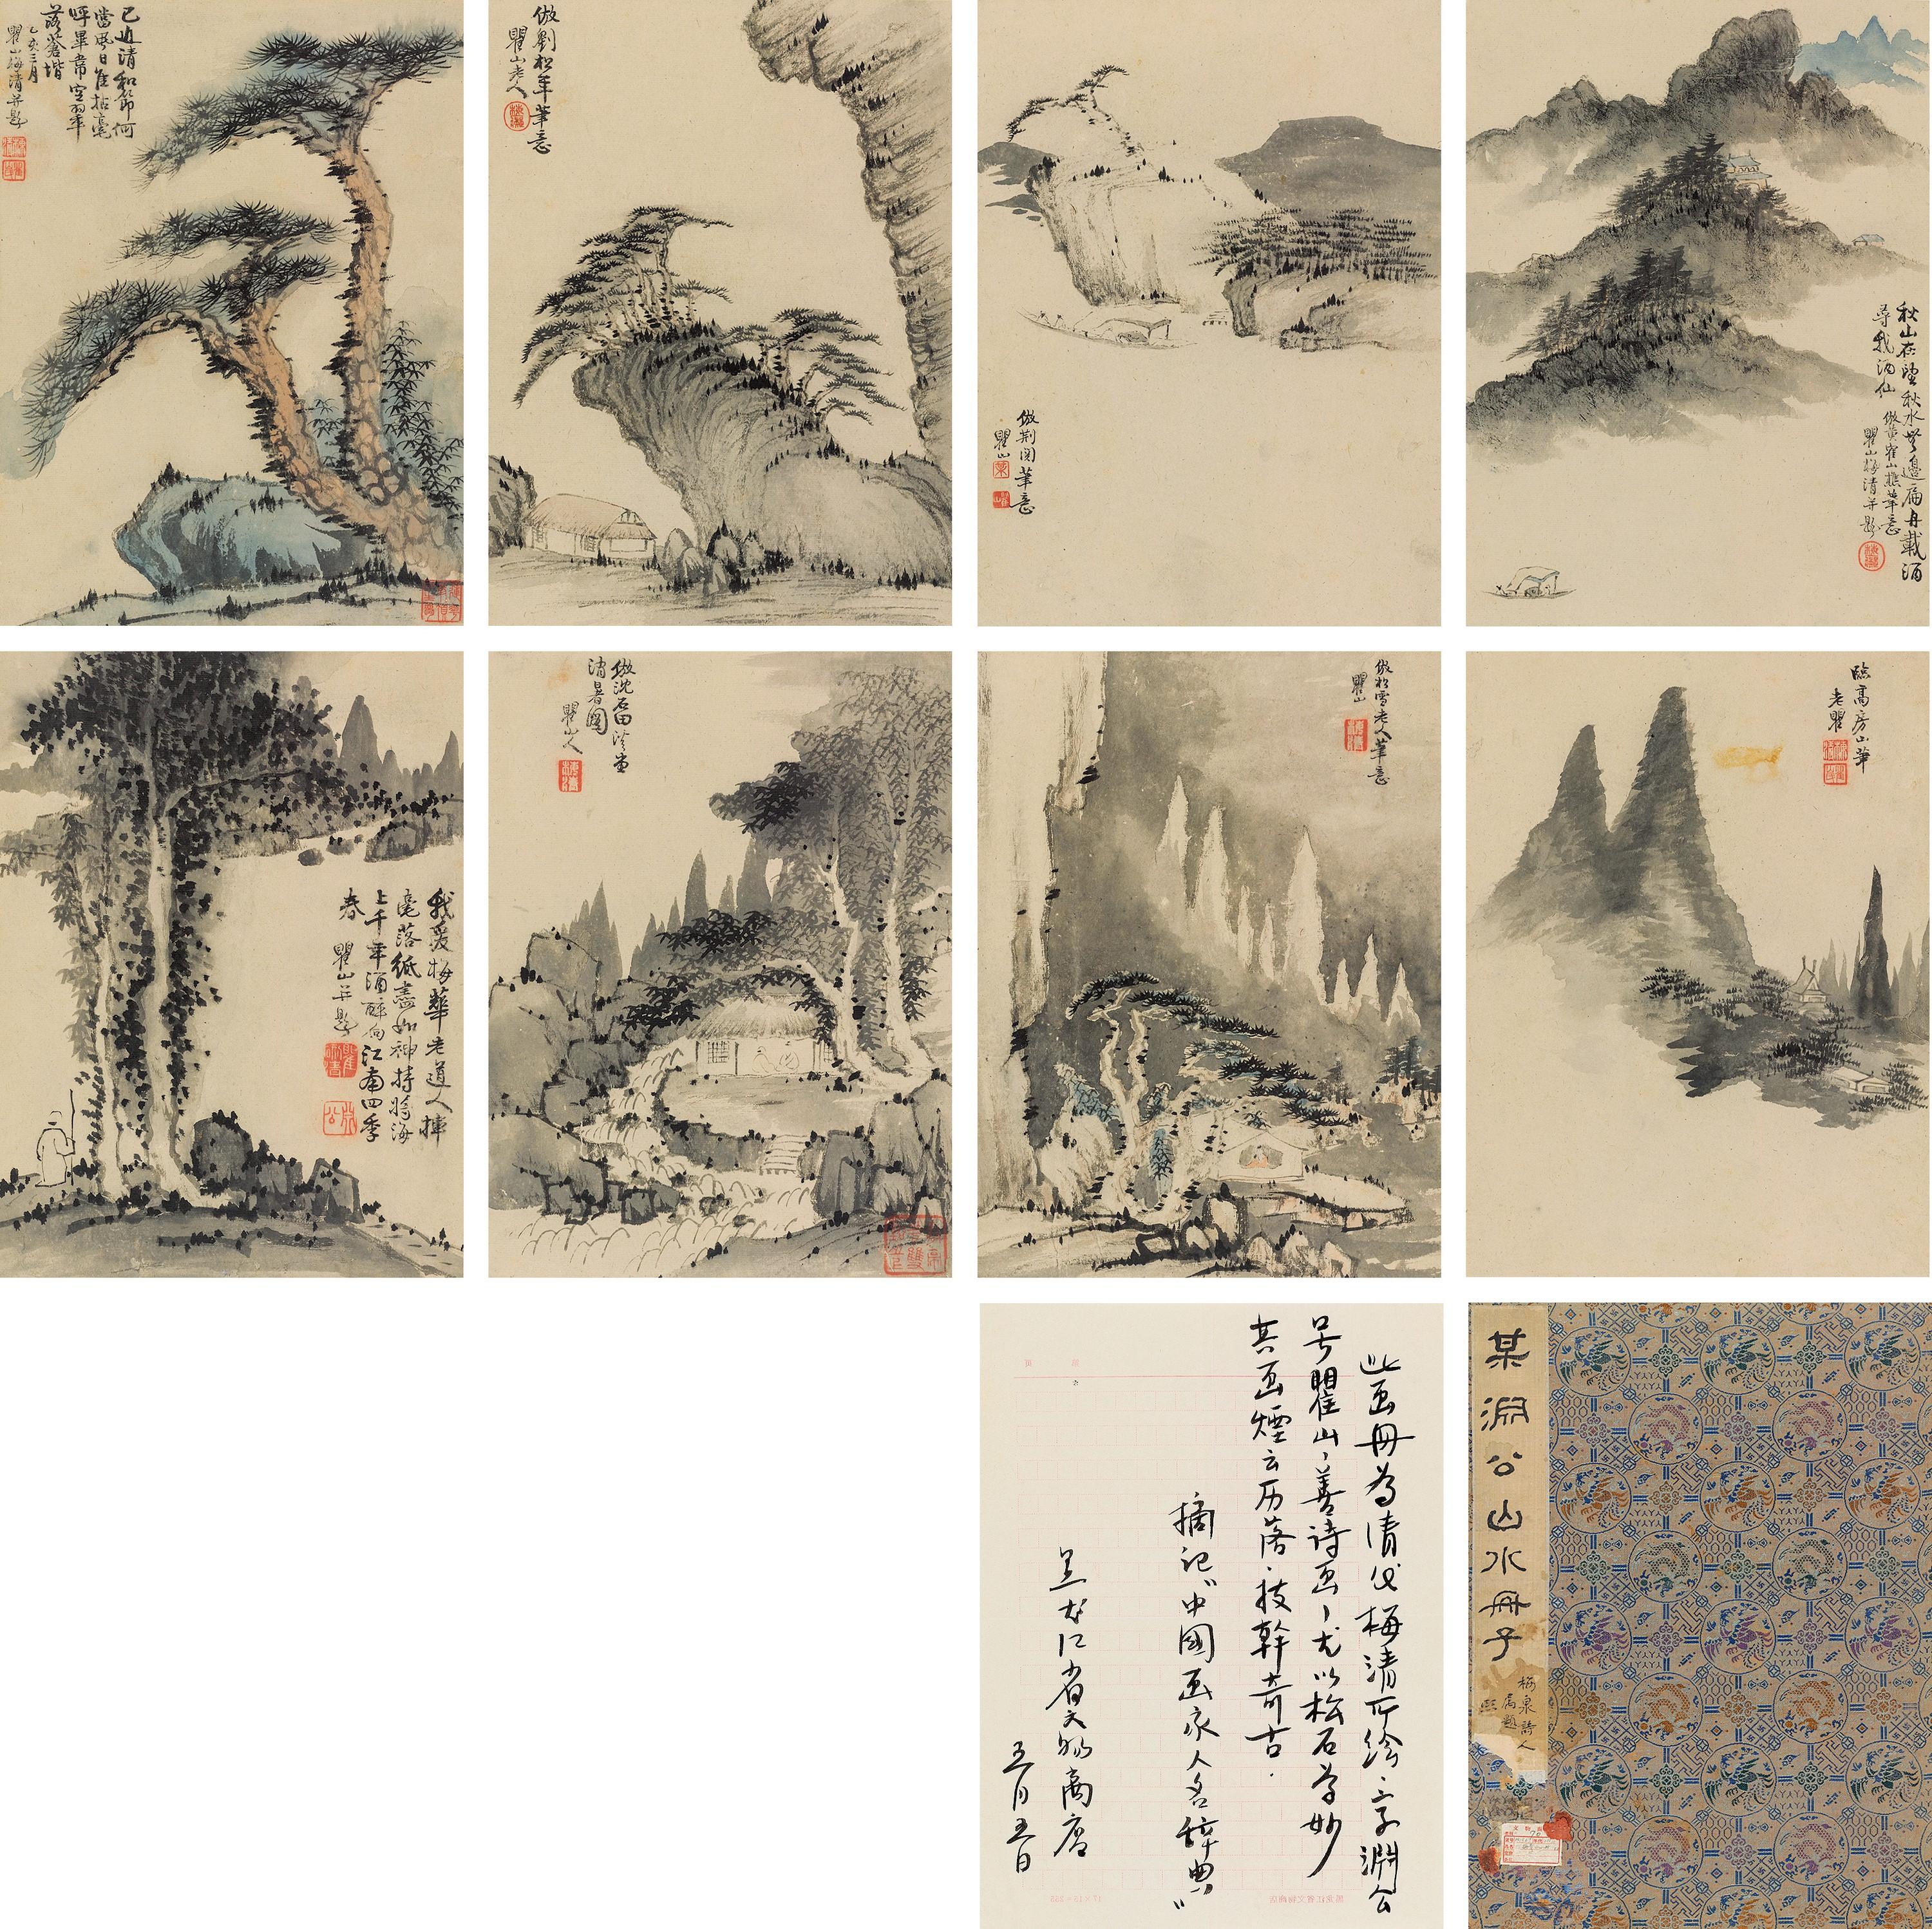 已近清和節何
當風日佳拈毫
呼畢常空羽年
落蒼堦
乙亥三月
瞿山梅清并題
倣劉松年筆意
瞿山老人
倣荆関筆意
瞿山
秋山在望秋水無邊扁舟載酒
尋我酒仙
倣黄鶴山樵筆意
瞿山梅清并題
我愛梅華老道人揮
毫落紙盡如神持將海
上千年酒醉向江南四季
春
瞿山并題
倣沈石田溪堂
消暑圖
瞿山人
倣松雪老人筆意
瞿山
臨高房山筆
老瞿
此画册为清代梅清所绘，字淵公
号瞿山，善诗画，尤以松石为妙
其画煙云历落，枝幹奇古．
摘记“中國画家人名辞典”
黑龙江省文物商店
五月五日
某淵公山水冊子
梅泉詩人
屬題
熙